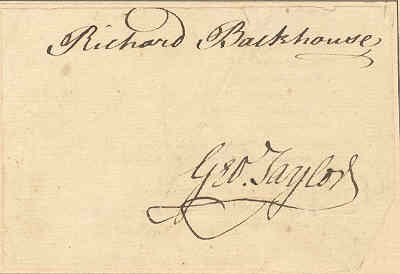 Richard Backhouse
Geo. Taylor